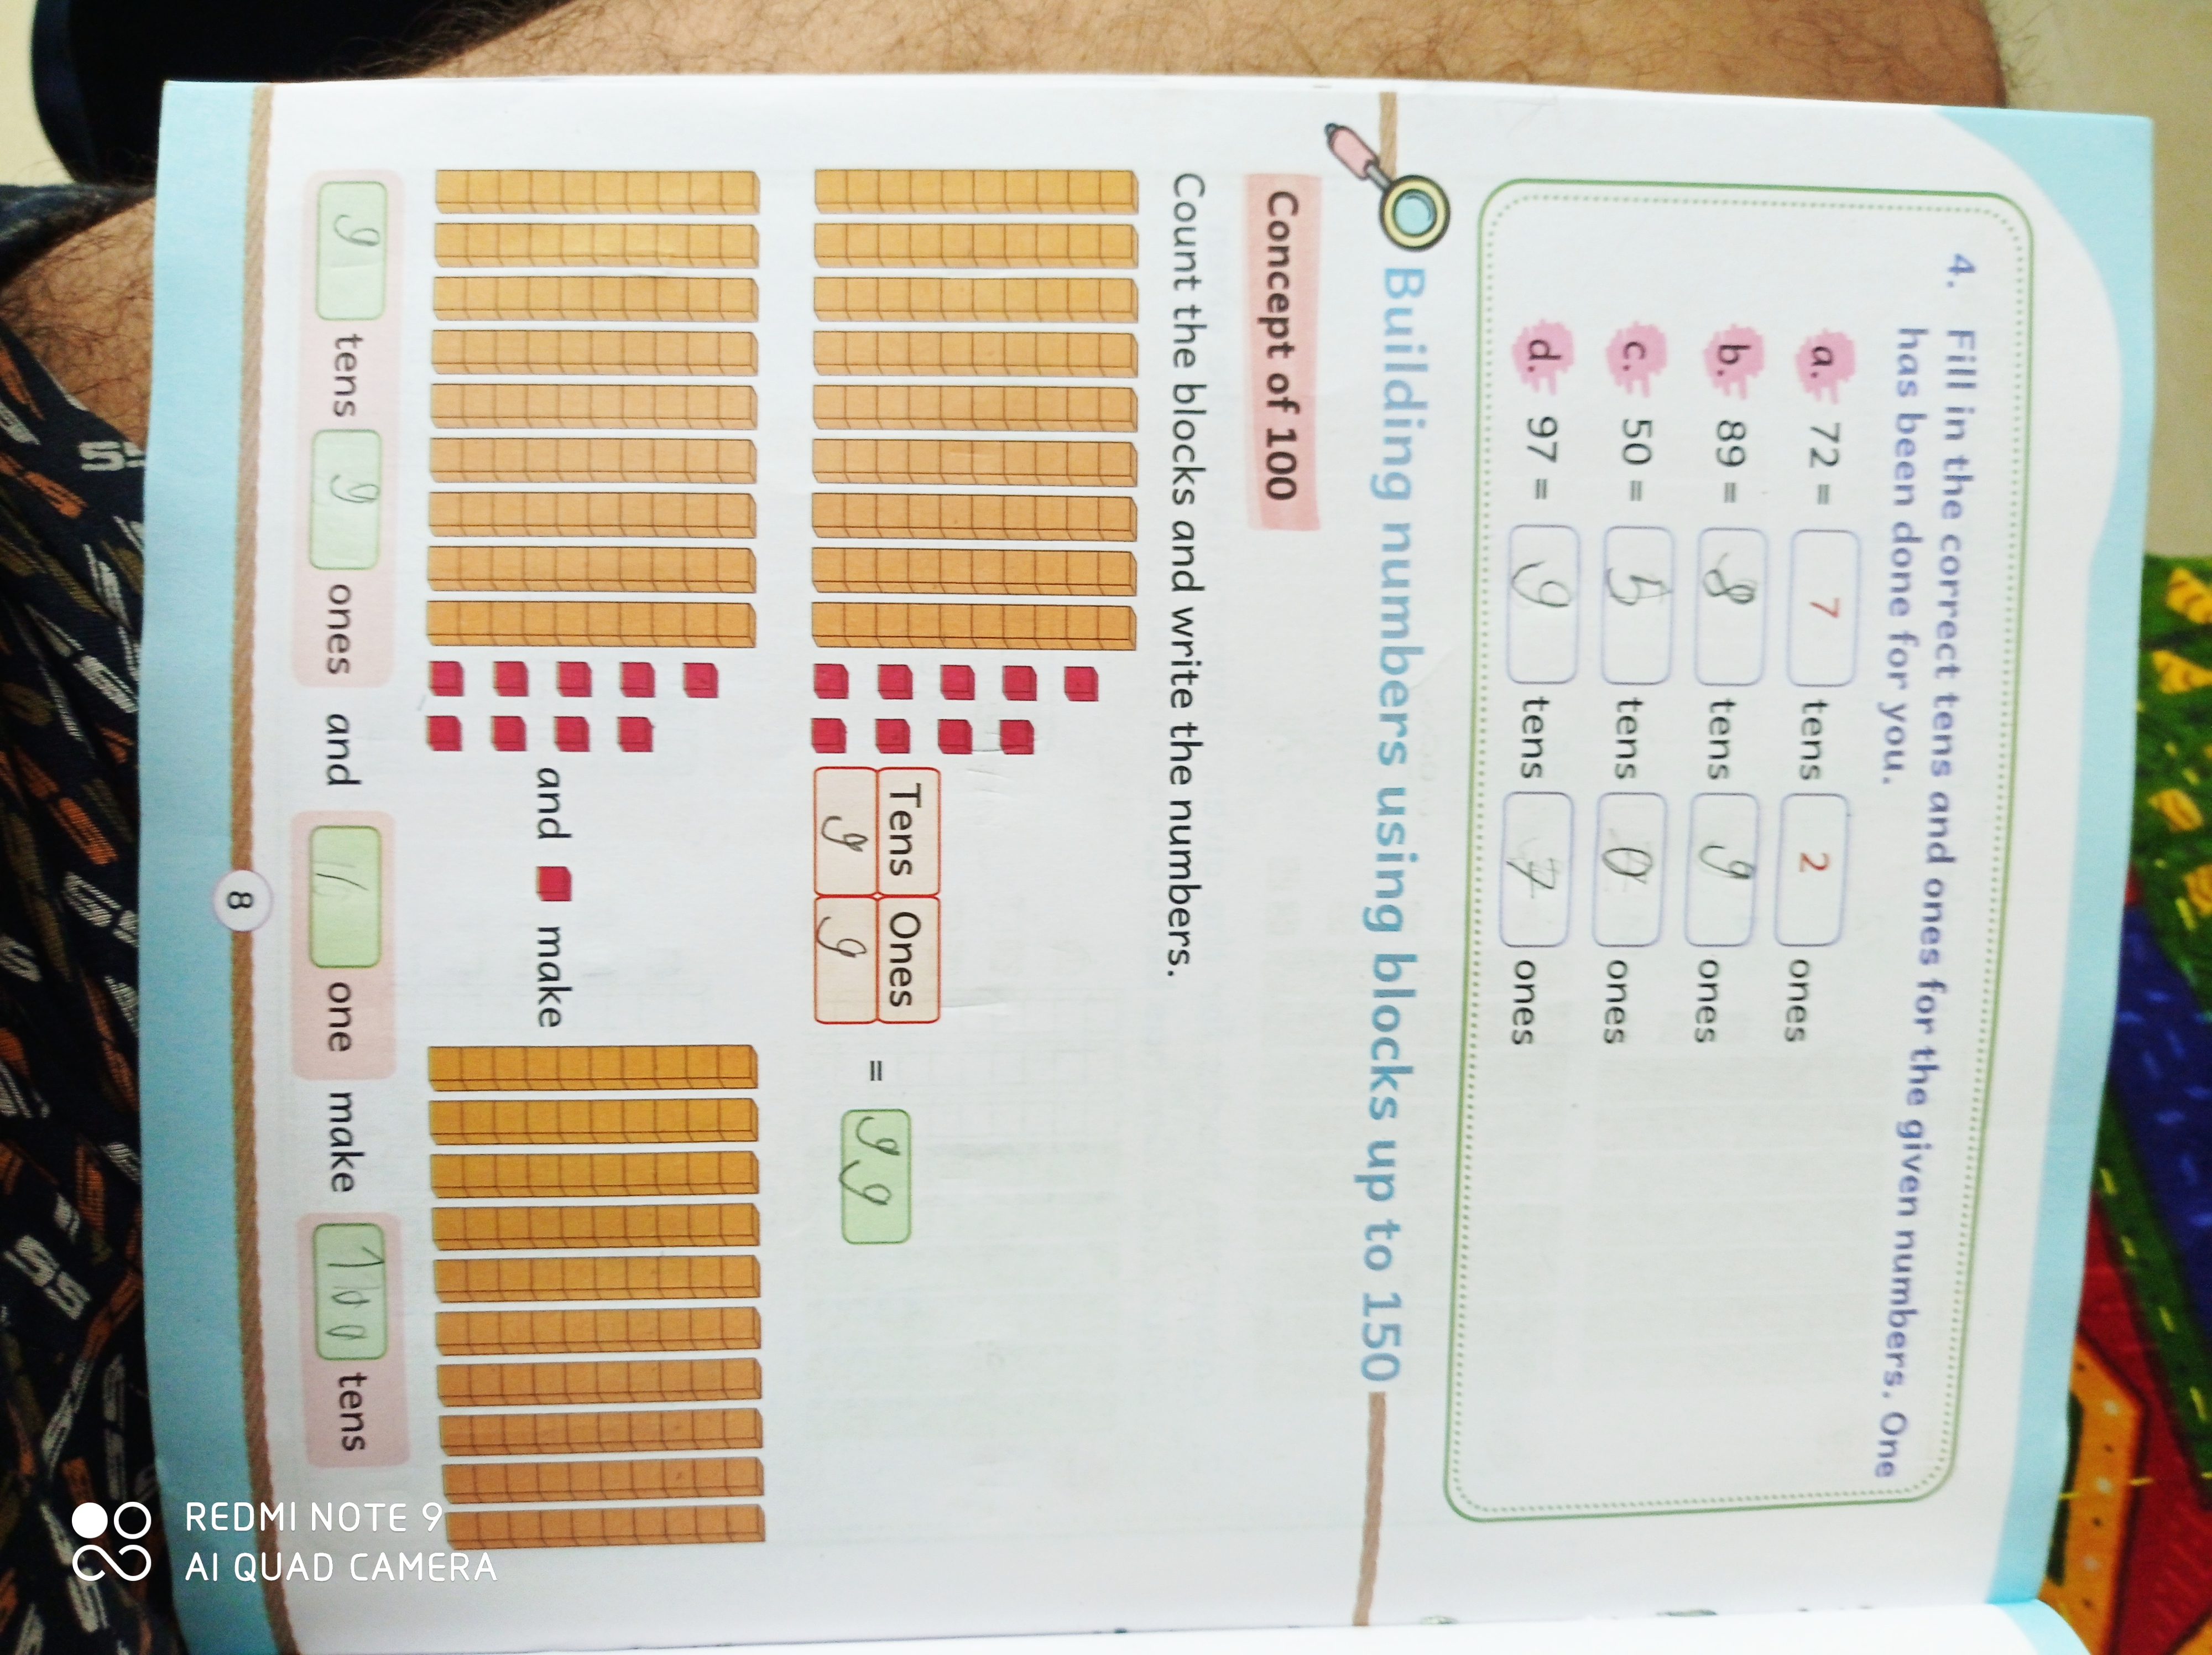 4. Fill in the correct tens and ones for the given numbers. One
has been done for you.
a. 72 = 7 tens 2 ones
b. 89 = 8 tens 9 ones
c. 50 = 5 tens 0 ones
d. 97 = 9 tens 7 ones
Building numbers using blocks up to 150
Concept of 100
Count the blocks and write the numbers.
Tens Ones
9 9 = 99
and make
9 tens 9 ones and 1 one make 100 tens
8
REDMI NOTE 9
AI QUAD CAMERA